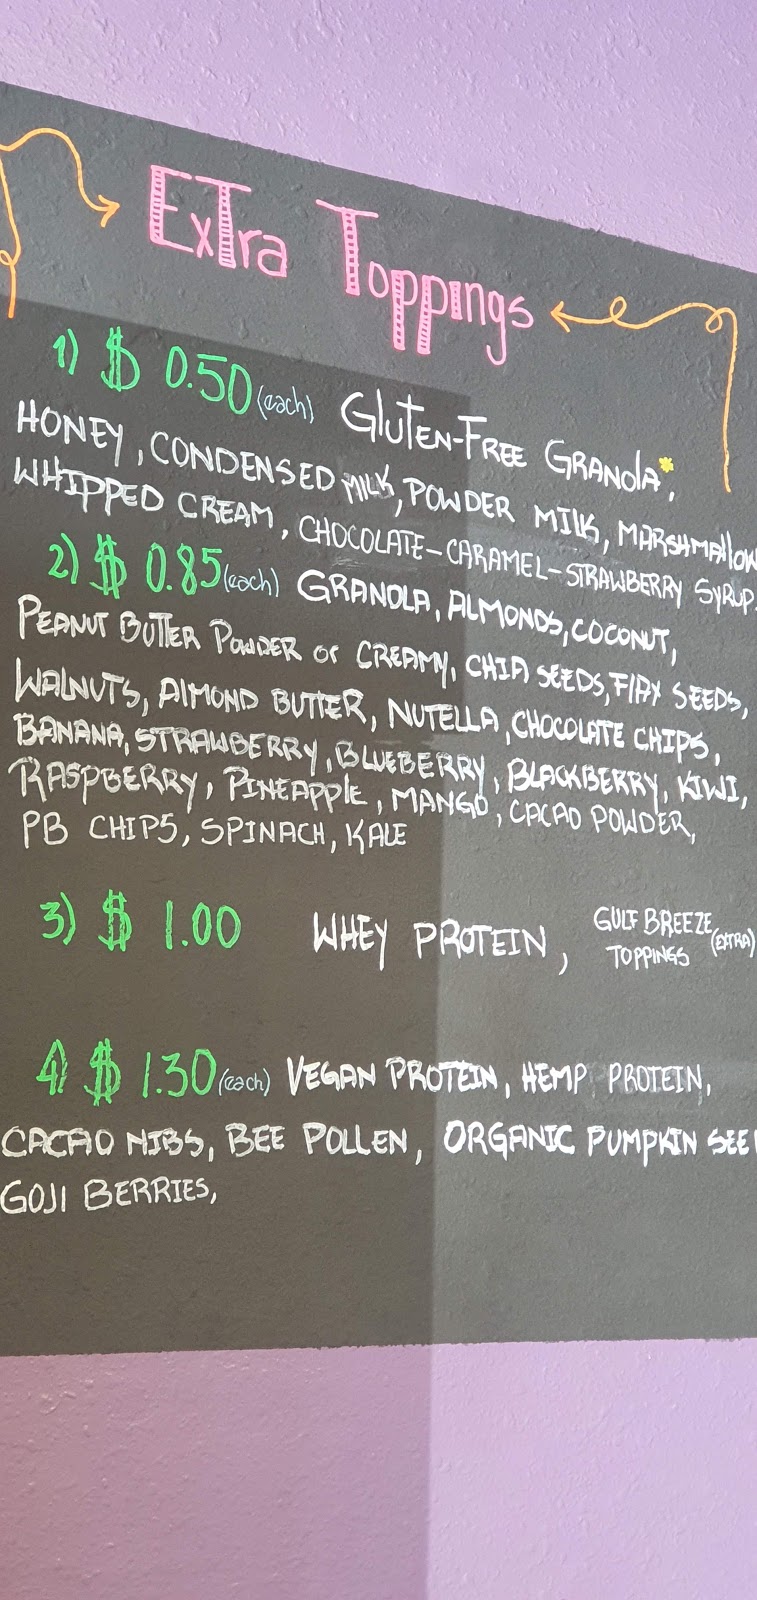 Extra Toppings
1) $ 0.50 (each) Gluten-Free Granola*,
Honey, Condensed Milk, Powder Milk, Marshmallow
Whipped Cream, Chocolate-Caramel-Strawberry Syrup.
2) $ 0.85 (each) Granola, Almonds, Coconut,
Peanut Butter Powder or Creamy, Chia Seeds, Flax Seeds,
Walnuts, Almond Butter, Nutella, Chocolate Chips,
Banana, Strawberry, Blueberry, Blackberry, Kiwi,
Raspberry, Pineapple, Mango, Cacao Powder,
PB Chips, Spinach, Kale
3) $ 1.00 Whey Protein, Gulf Breeze Toppings (Extra)
4) $ 1.30 (each) Vegan Protein, Hemp Protein,
Cacao Nibs, Bee Pollen, Organic Pumpkin See
Goji Berries,